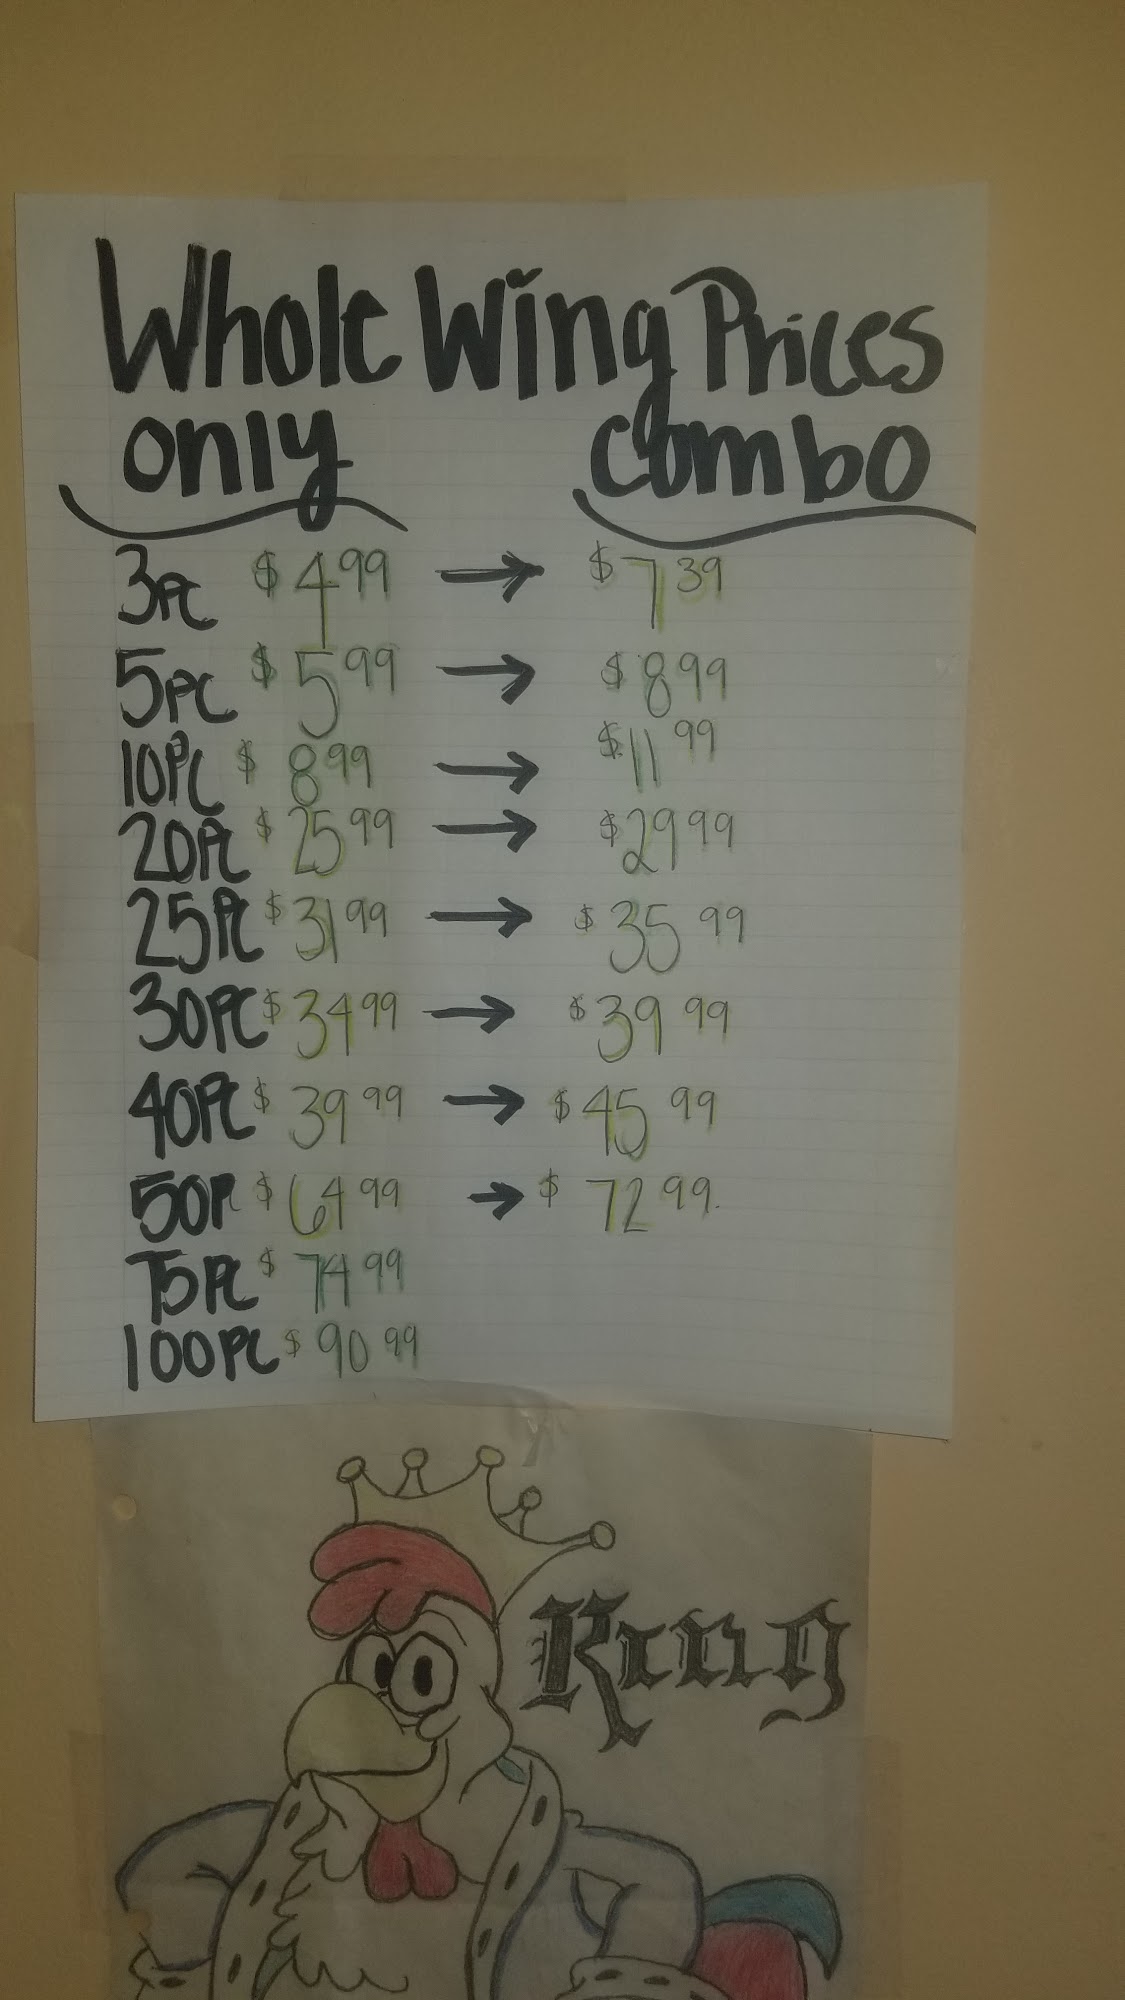 Whole Wing Prices
only combo
3pc $4.99 → $7.39
5pc $5.99 → $8.99
10pc $8.99 → $11.99
20pc $25.99 → $29.99
25pc $31.99 → $35.99
30pc $34.99 → $39.99
40pc $39.99 → $45.99
50p $64.99 → $72.99
75pc $74.99
100pc $90.99
King